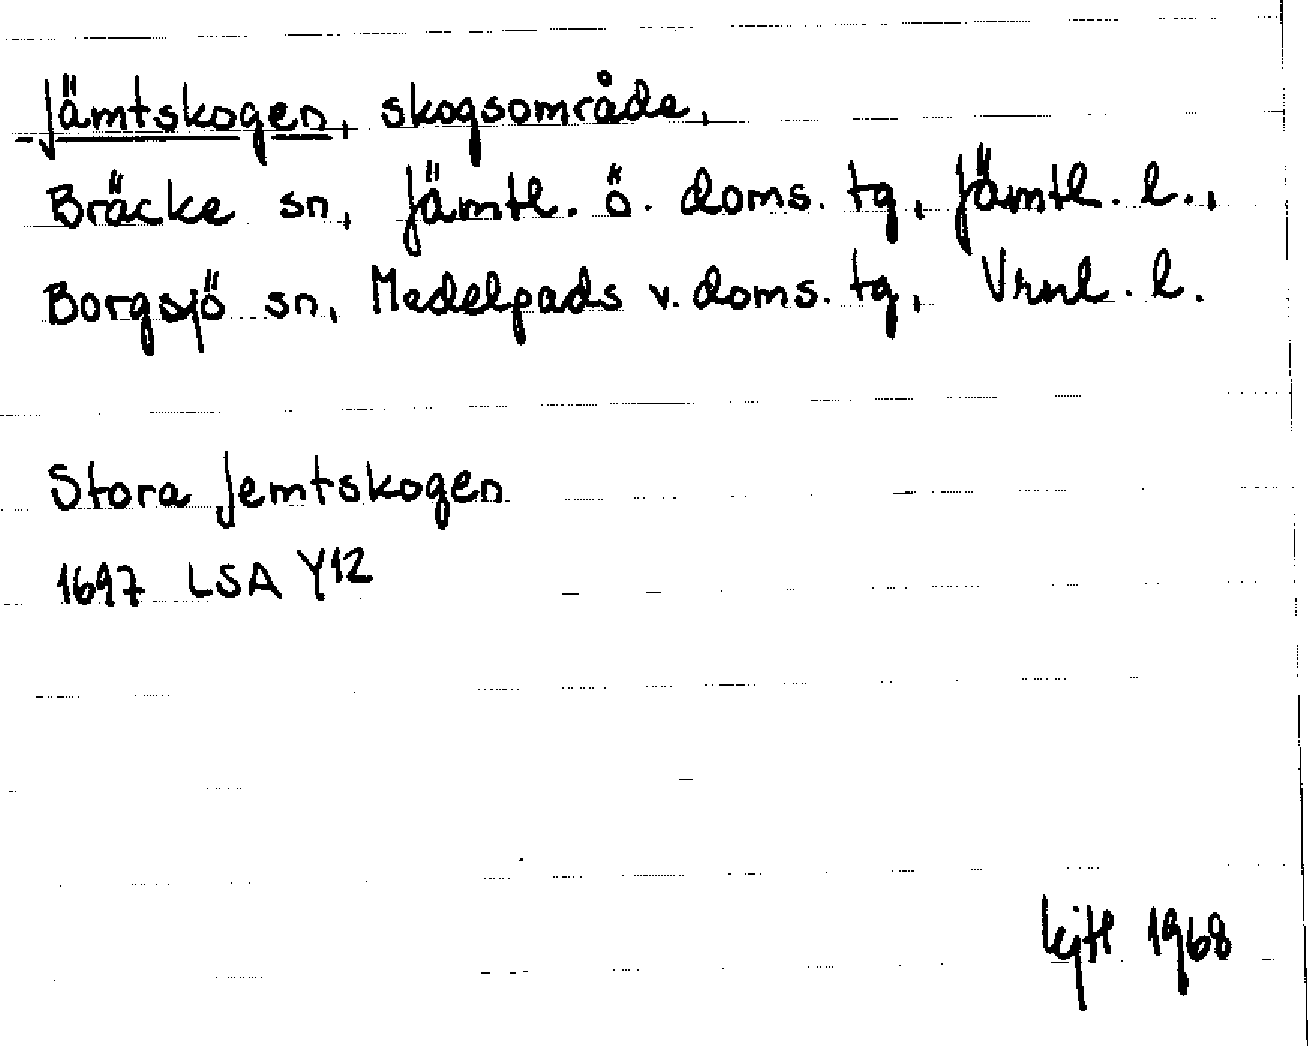 Jämtskogen, skogsområde,
Bräcke sn, Jämtl. ö. doms. tg, Jämtl. l.,
Borgsjö sn, Medelpads v. doms. tg, Vrnl. l.
Stora Jemtskogen
1697 LSA Y12
1968